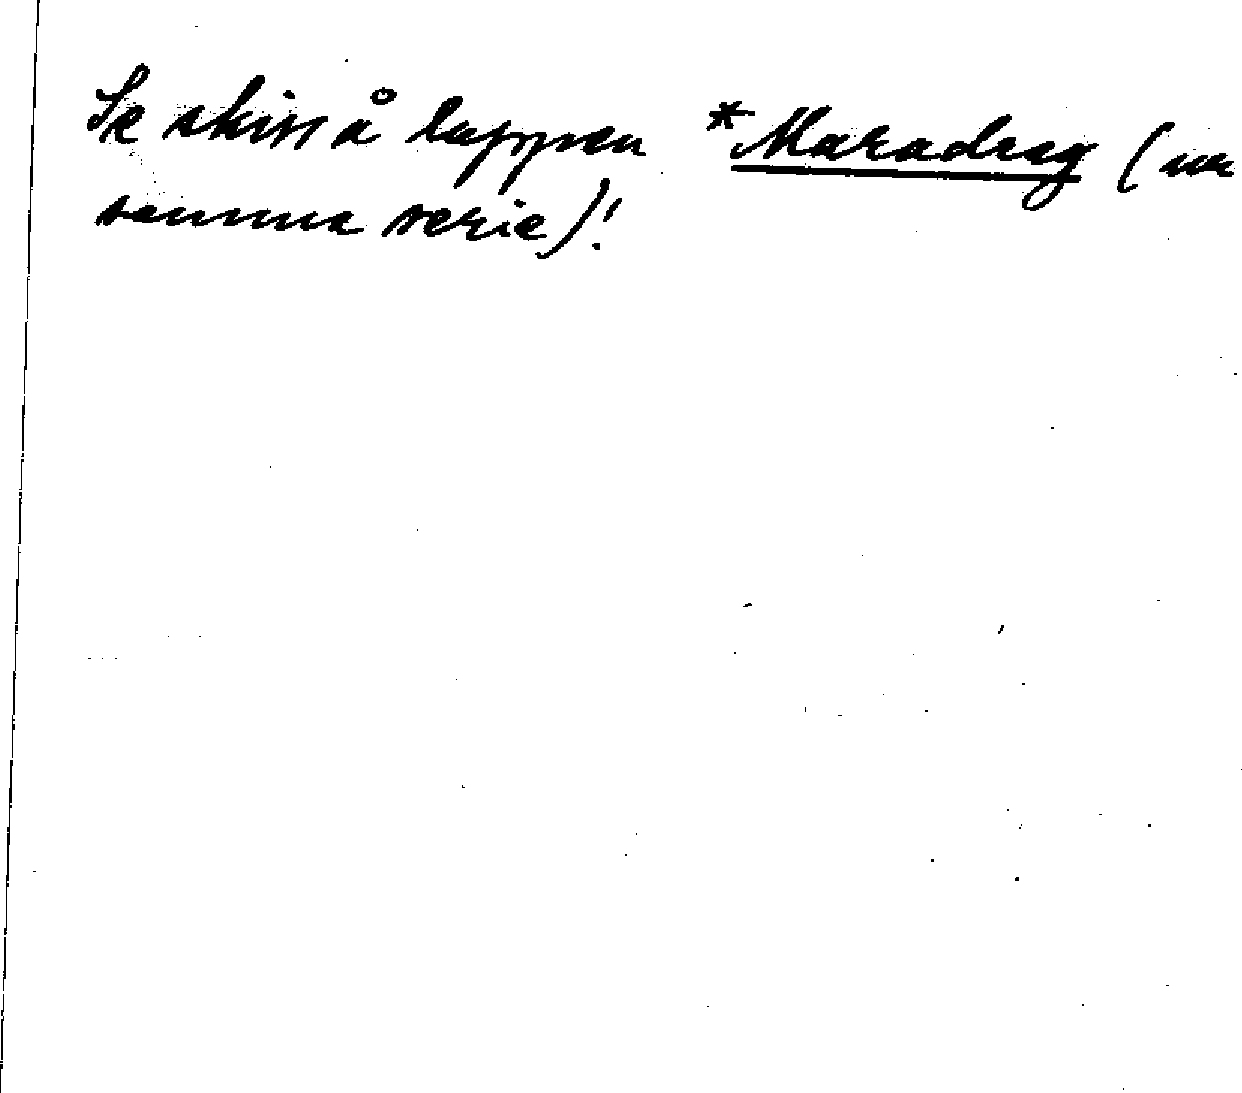 Se skiss å lappen *Maradrag (ur
samma serie)!